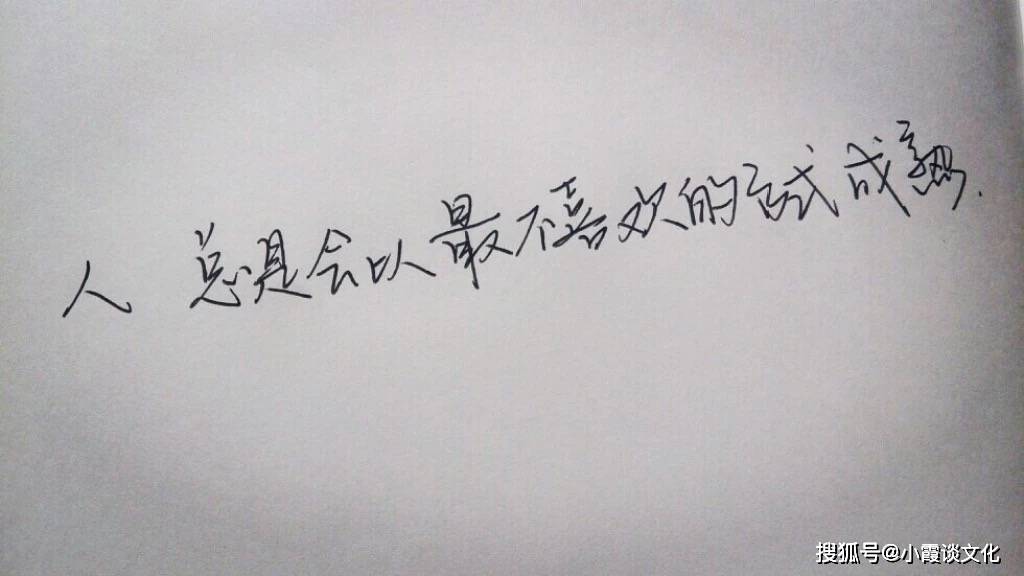 人 总是会以最不喜欢的方式成熟.
搜狐号@小霞谈文化